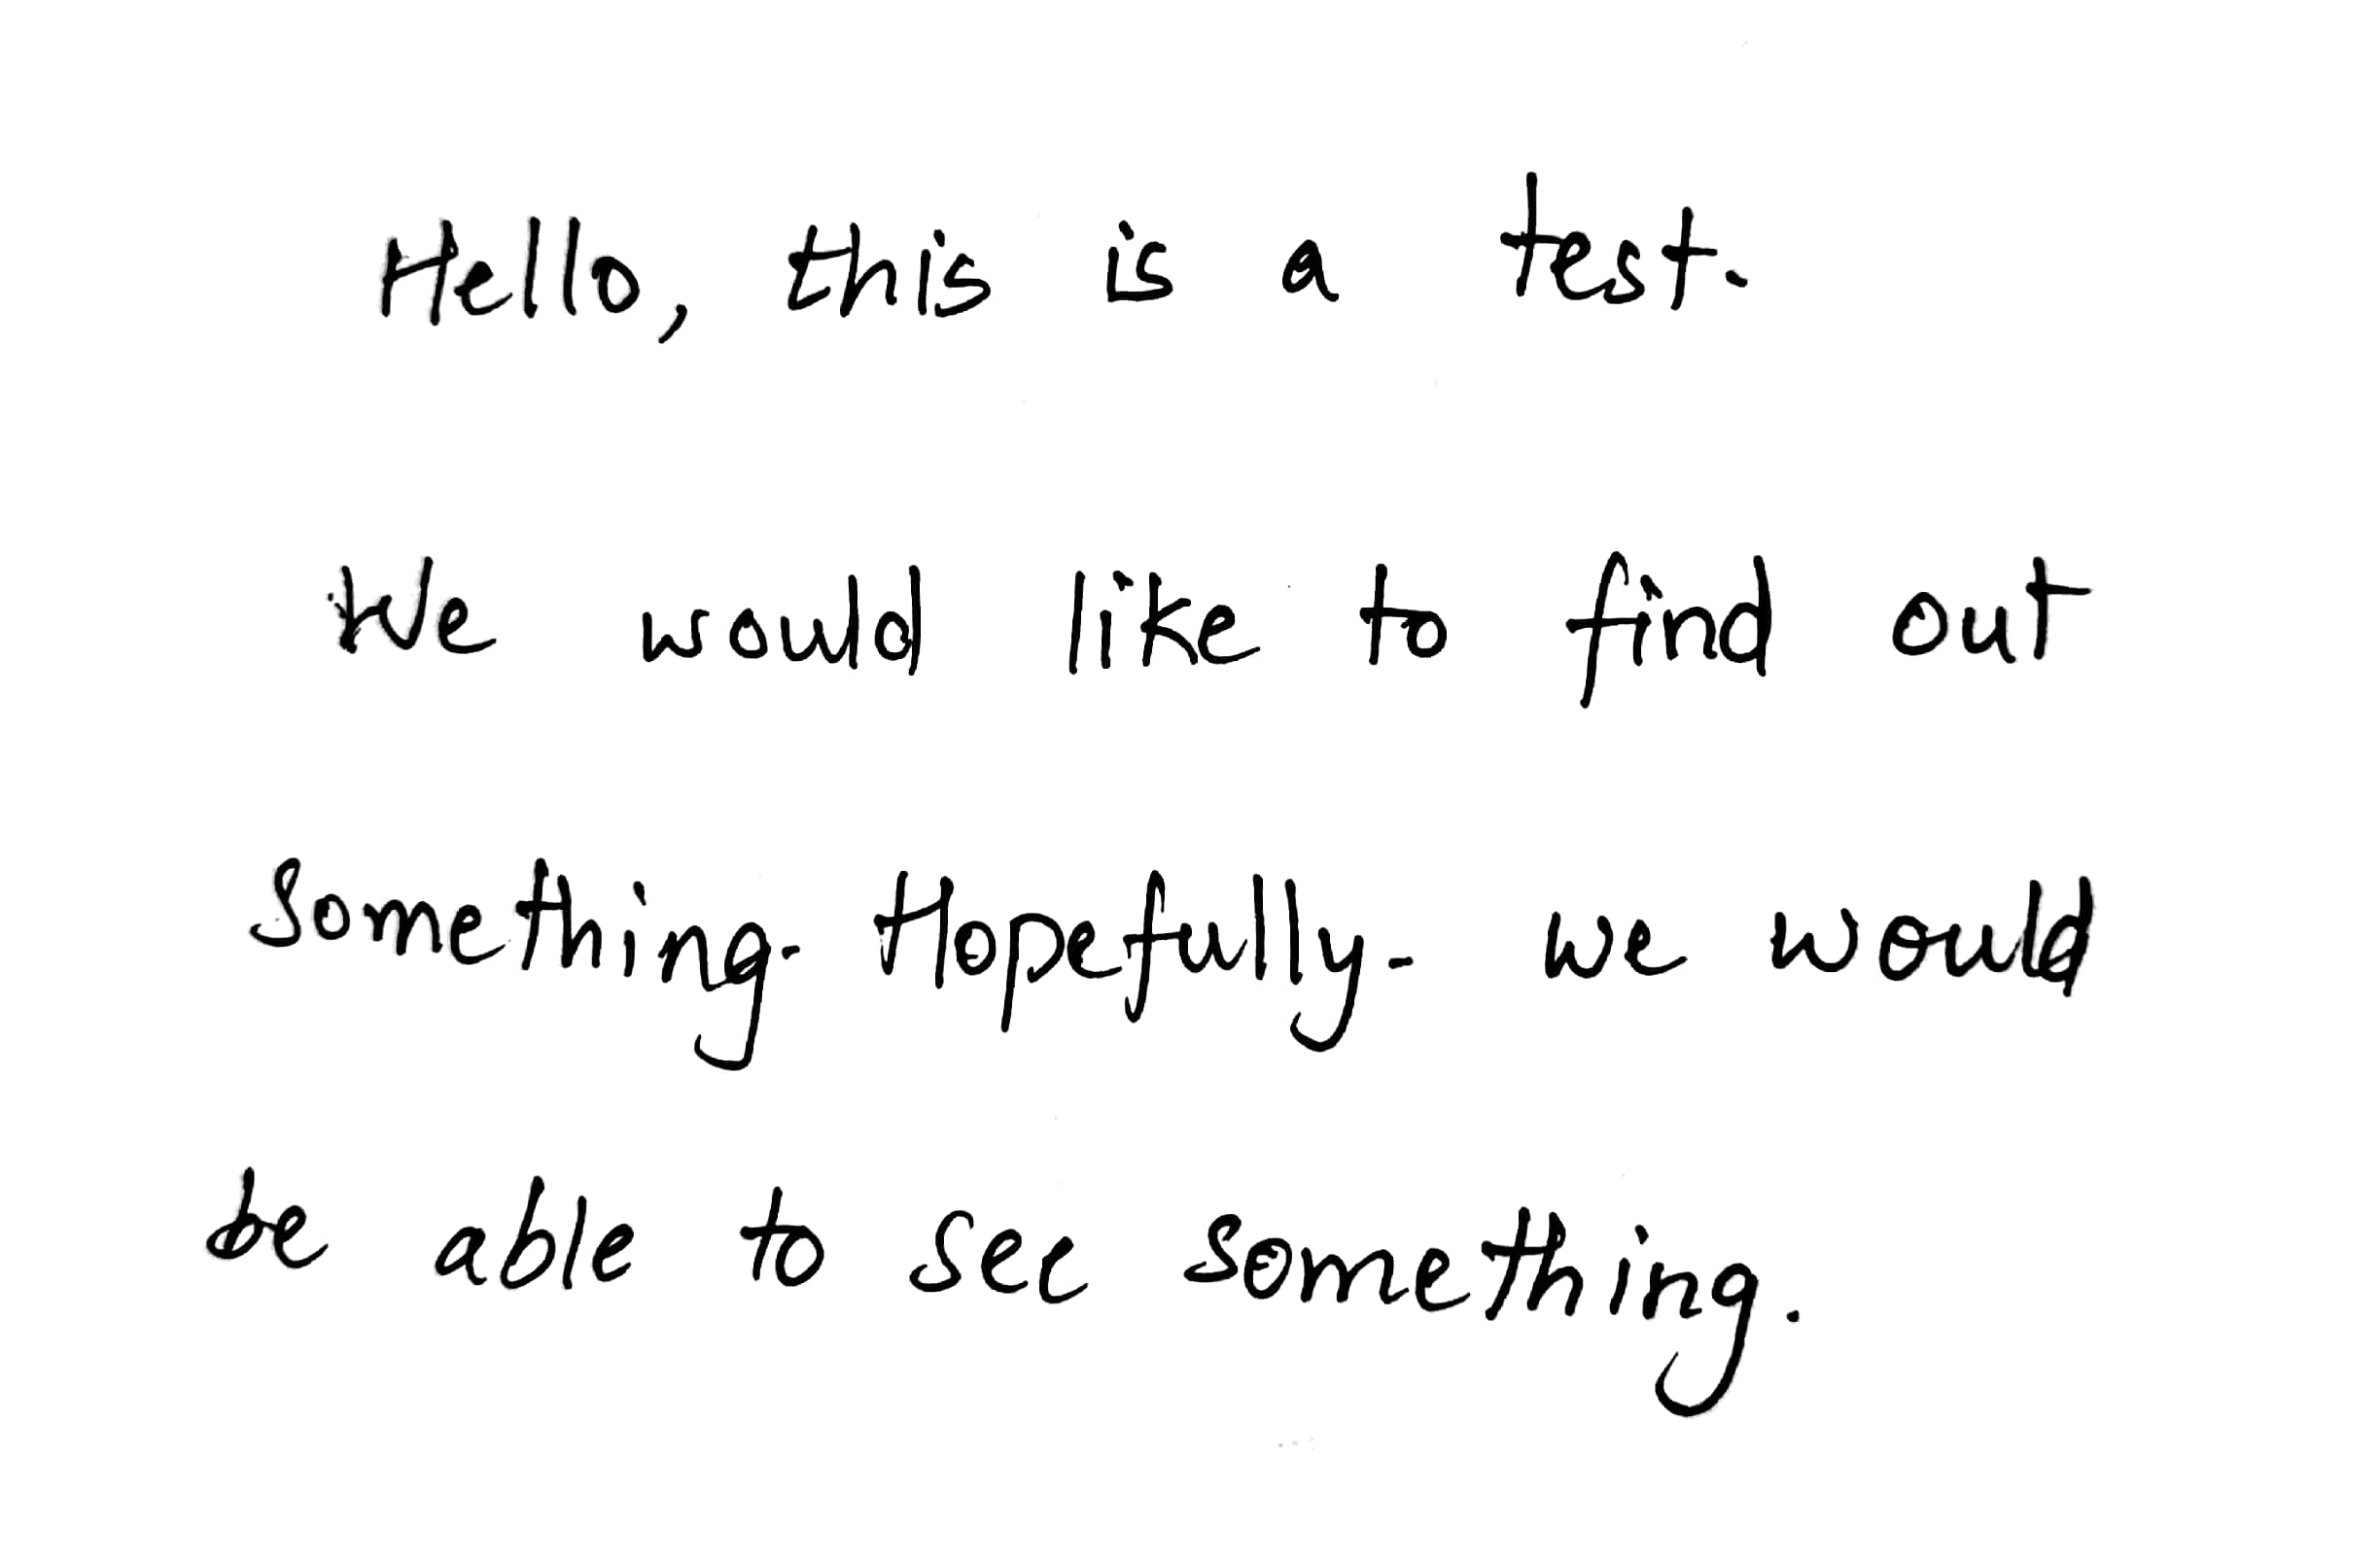 Hello, this is a test.
We would like to find out
something. Hopefully. we would
be able to see something.